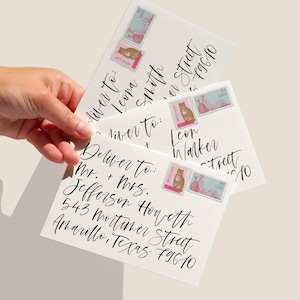 Deliver to:
Leona
Smith
Street
79610
Deliver to:
Leon
Walker
Street
79610
Deliver to:
Mr. + Mrs.
Jefferson Howeth
543 Mortimer Street
Amarillo, Texas 79610